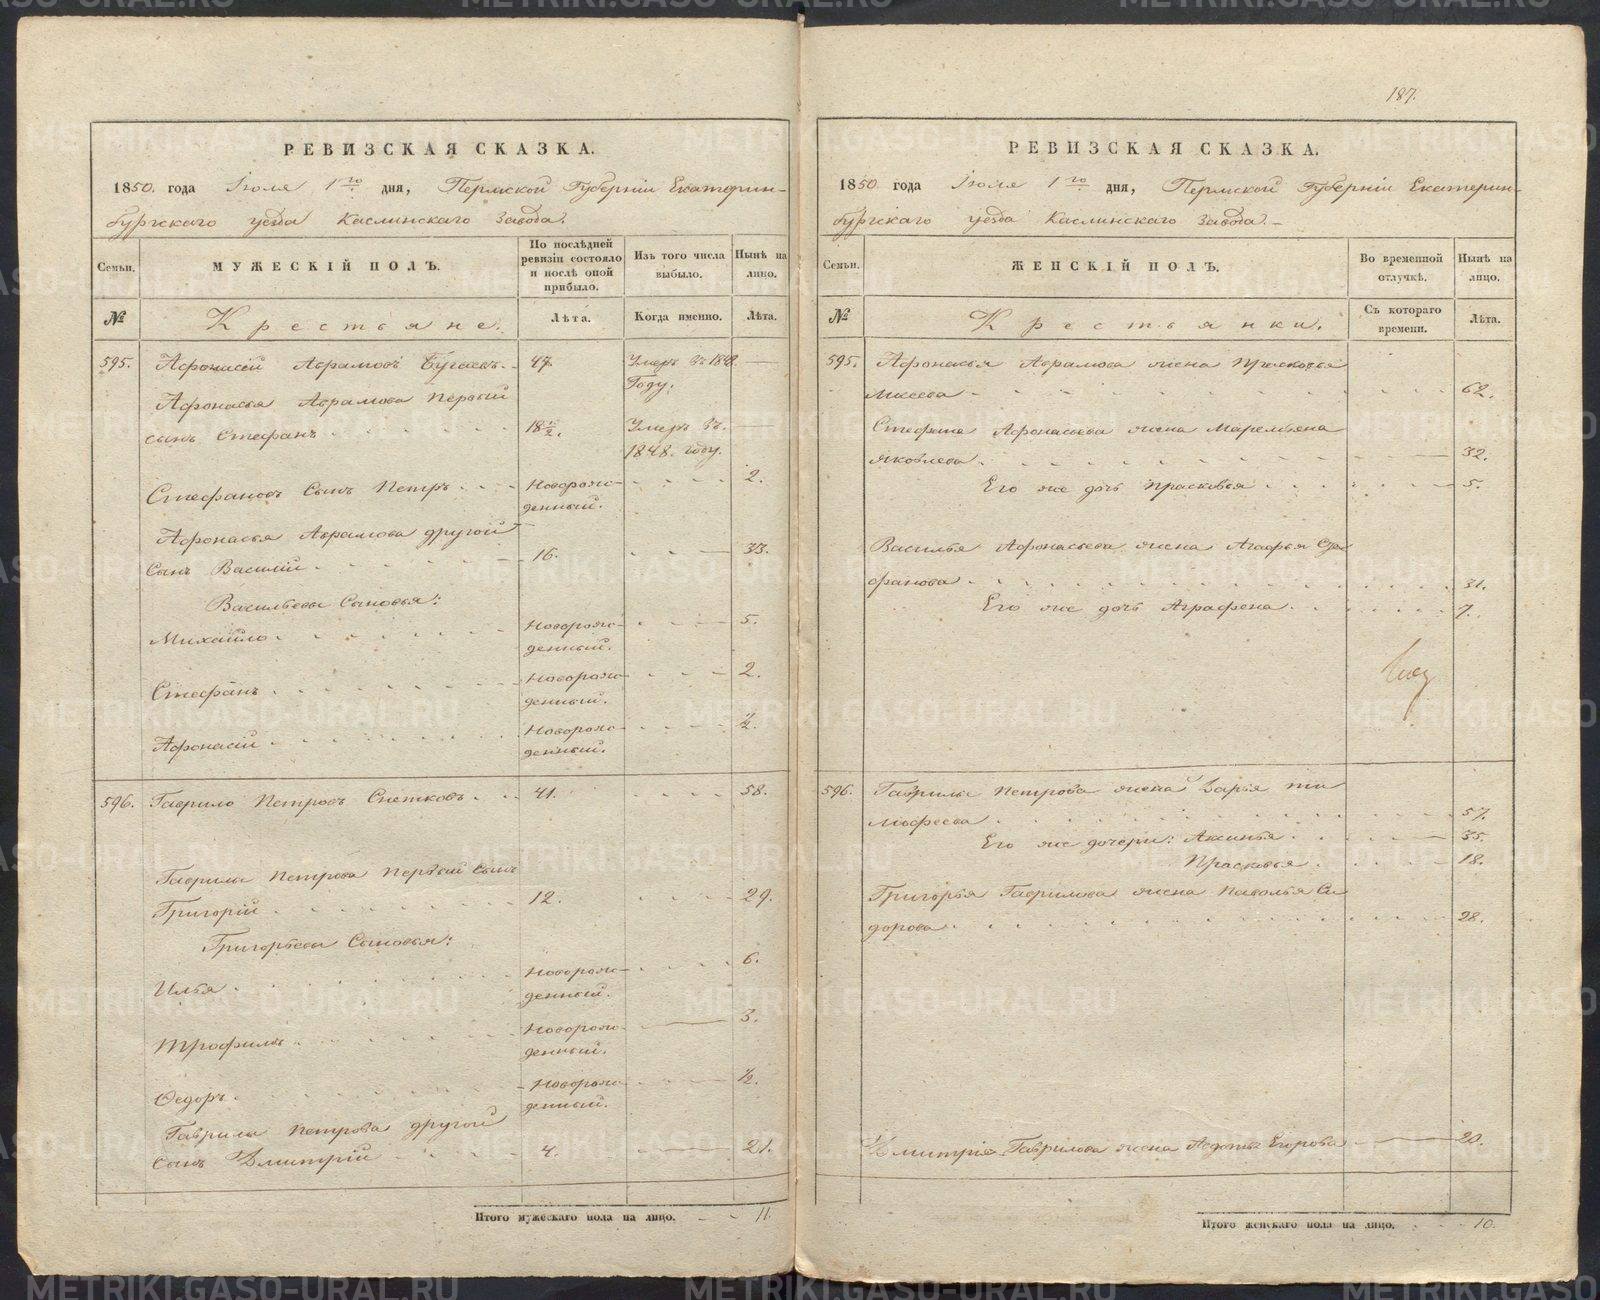 187.
РЕВИЗСКАЯ СКАЗКА.
1850. года Іюля 1го дня, Пермской Губерніи Екатерин-
бургскаго уезда Каслинскаго Завода.
Семьи. МУЖЕСКІЙ ПОЛЪ. По послѣдней ревизіи состояло и послѣ оной прибыло. Изъ того числа выбыло. Нынѣ на лицо.
№ Крестьяне. Лѣта. Когда именно. Лѣта.
595. Афонасій Аврамовъ Бугаевъ. 47. Умеръ въ 1848.
Году.
Афонасья Аврамова первый
сынъ Стефанъ 18 1/2. Умеръ въ
1848. году.
Стефановъ Сынъ Петръ Новорож- 2.
денный.
Афонасья Аврамова другой
Сынъ Василій 16. 33.
Васильевы Сыновья:
Михайло Новорож- 5.
денный.
Стефанъ Новорож- 2.
денный.
Афонасій Новорож- 1/2.
денный.
596. Гаврило Петровъ Снетковъ 41. 58.
Гаврилы Петрова первый Сынъ
Григорій 12. 29.
Григорьевы Сыновья:
Илья Новорож- 6.
денный.
Трофимъ Новорож- 3.
денный.
Ѳедоръ Новорож- 1/2.
денный.
Гаврилы Петрова другой
Сынъ Дмитрій 4. 21.
Итого мужескаго пола на лицо. 11.
РЕВИЗСКАЯ СКАЗКА.
1850 года Іюля 1го дня, Пермской Губерніи Екатерин-
бургскаго уезда Каслинскаго Завода.
Семьи. ЖЕНСКІЙ ПОЛЪ. Во временной отлучкѣ. Нынѣ на лицо.
№ Крестьянки. Съ котораго времени. Лѣта.
595. Афонасья Аврамова жена Прасковья
Микеева 62.
Стефана Афонасьева жена Маремьяна
Яковлева 32.
Его же дочь Прасковья 5.
Василья Афонасьева жена Агафья Сте-
фанова 31.
Его же дочь Аграфена 7.
596. Гаврилы Петрова жена Дарья Ти
мофеева 57.
Его же дочери: Аксинья 35.
Прасковья 18.
Григорья Гаврилова жена Наталья Си
дорова 28.
Дмитрія Гаврилова жена Авдотья Егорова 20.
Итого женскаго пола на лицо. 10.
METRIKI.GASO-URAL.RU